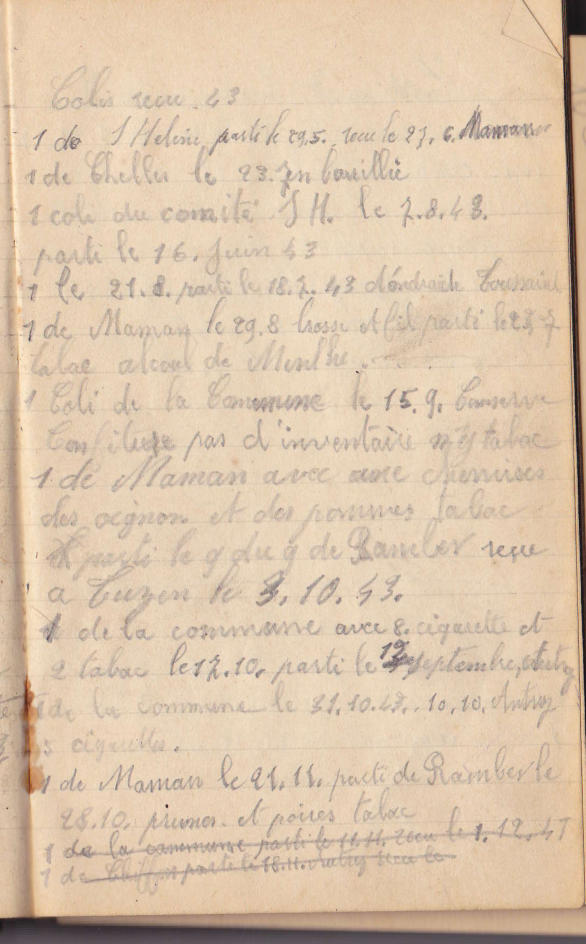 Colis recu. 43
1 de St Helene parti le 29.5. recu le 27. 6. Maman
1 de Chelles le 23.7
1 coli du comité S H. le 7.8.43.
parti le 16. Juin 43
1 le 21.8. parti le 18.7. 43 Toussaint
1 de Maman le 29.8 brosse et fil parti le 23.7
tabac alcool de Menthe.
1 Coli de la Commune le 15.9. Conserve
Confiture pas d'inventaire ni tabac
1 de Maman avec une chemises
des oignon et des pommes tabac
parti le 9 du 9 de Ramber reçu
a le 3.10.43.
1 de la commune avec 8. cigarette et
2 tabac le 17.10. parti le 12 septembre,
1 de la commune le 31.10.43. 10.10. Antroy
5 cigarettes.
1 de Maman le 21.11. parti de Ramber le
28.10. prunes et poires tabac
1 de la commune parti le 11.11. recu le 1.12.43
1 de parti le 18.11. recu le